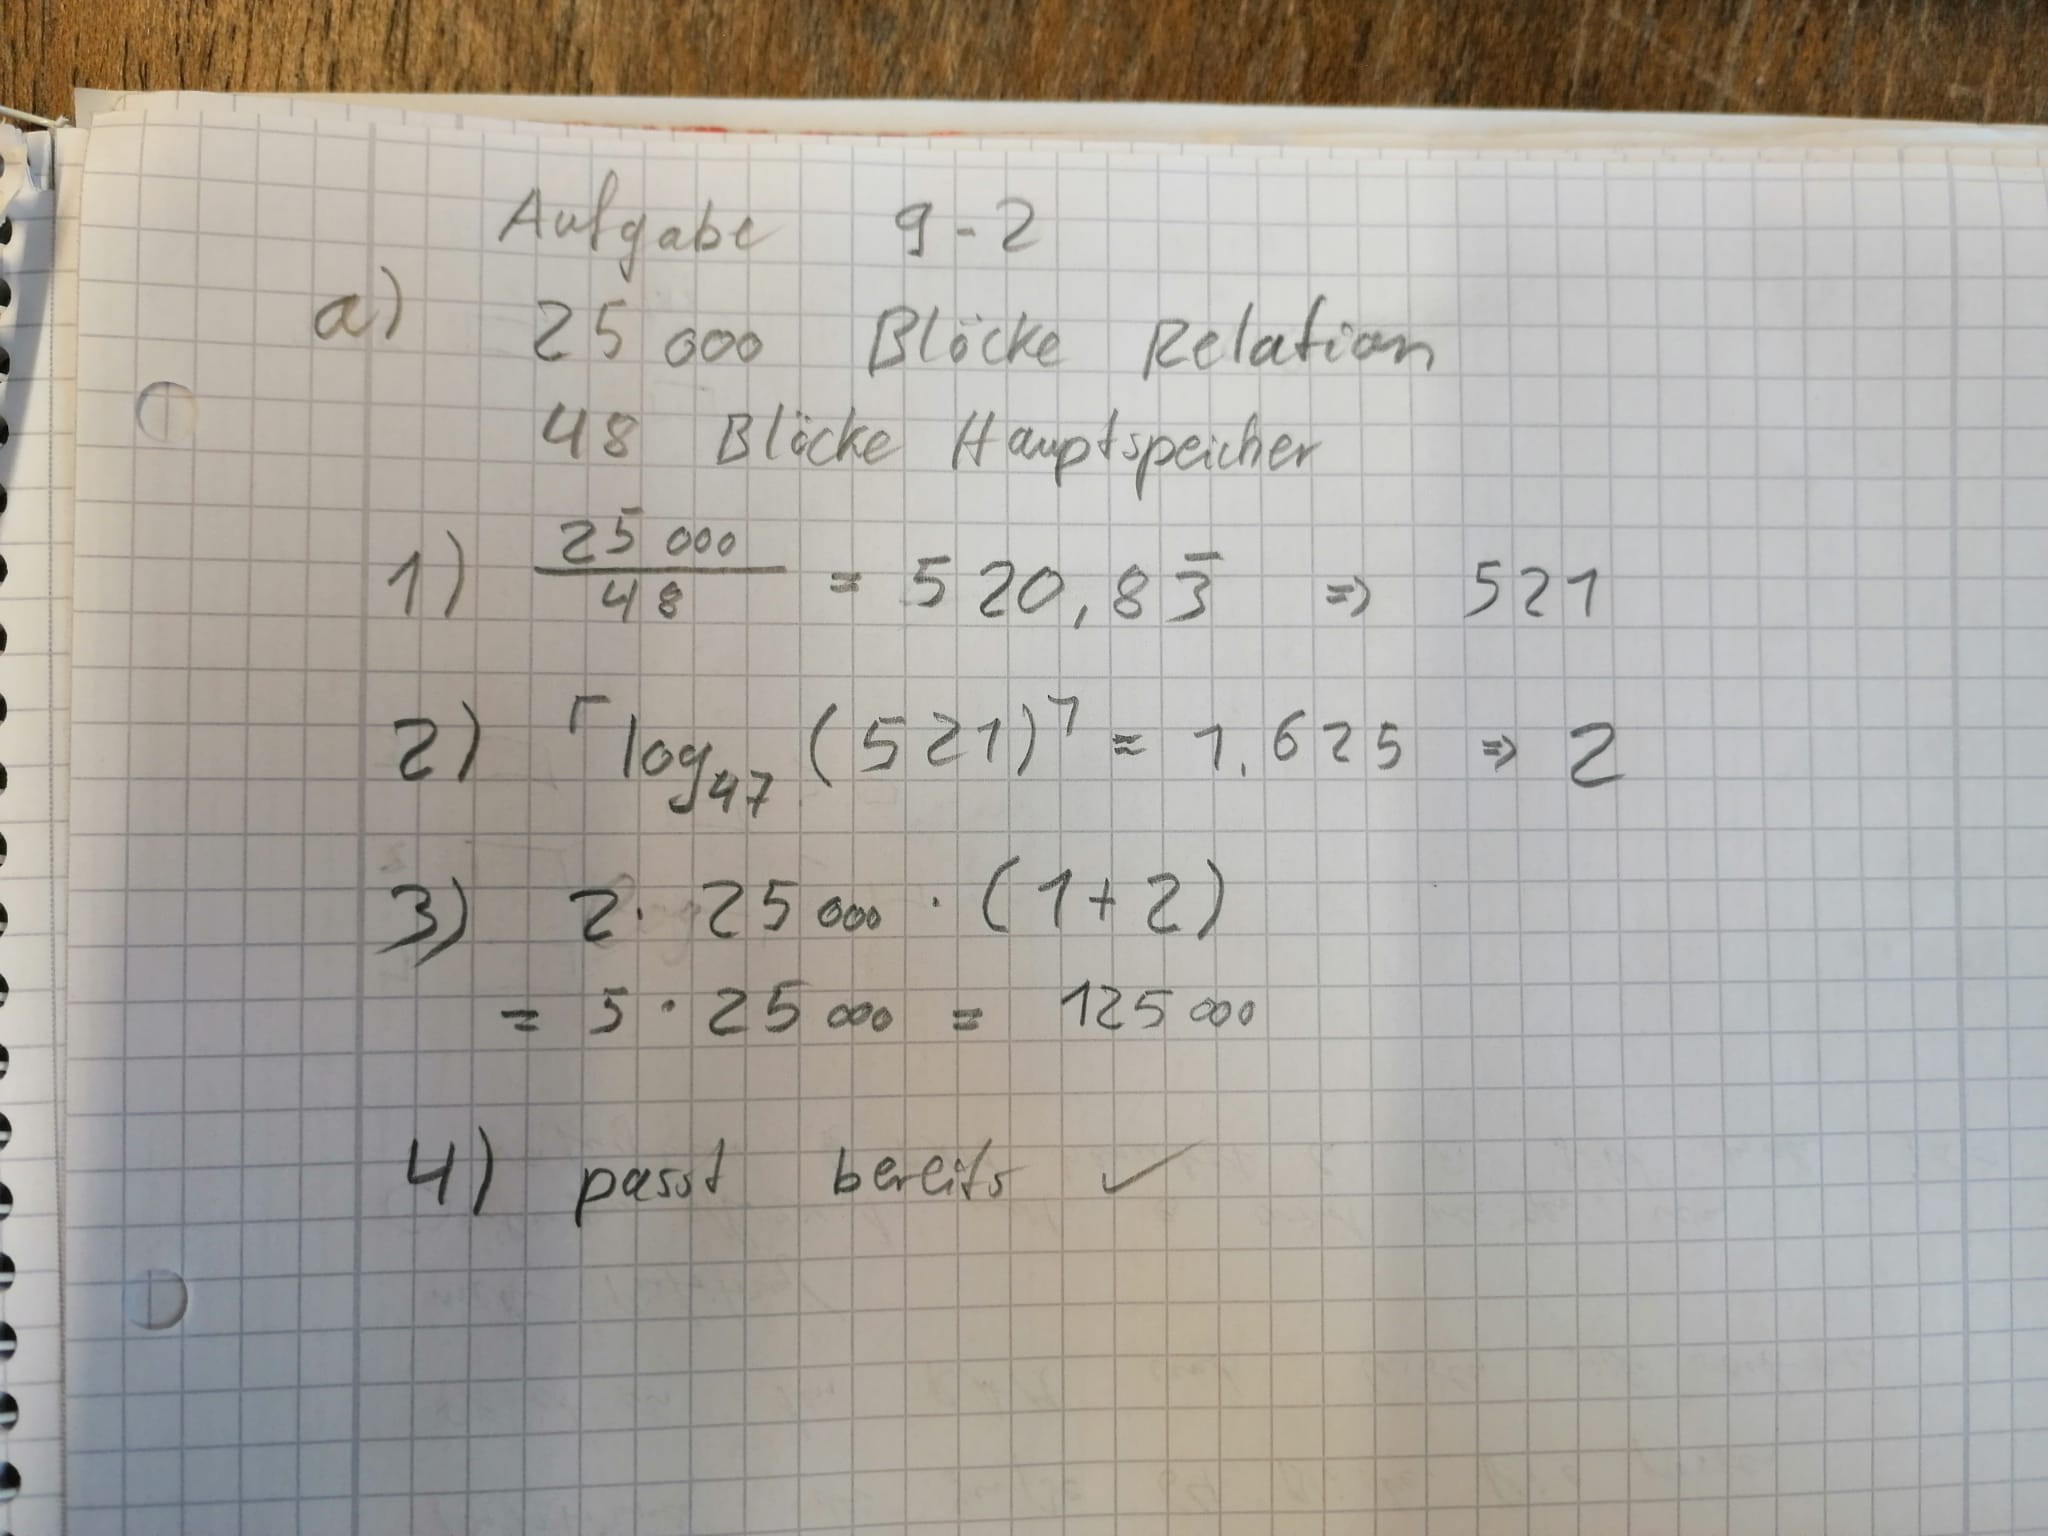 Aufgabe 9-2
a) 25 000 Blöcke Relation
48 Blöcke Hauptspeicher
1) 25 000 / 48 = 520,83̅ => 521
2) ⌈log₄₇ (521)⌉ = 1.625 => 2
3) 2 · 25 000 · (1+2)
= 5 · 25 000 = 125 000
4) passt bereits ✓